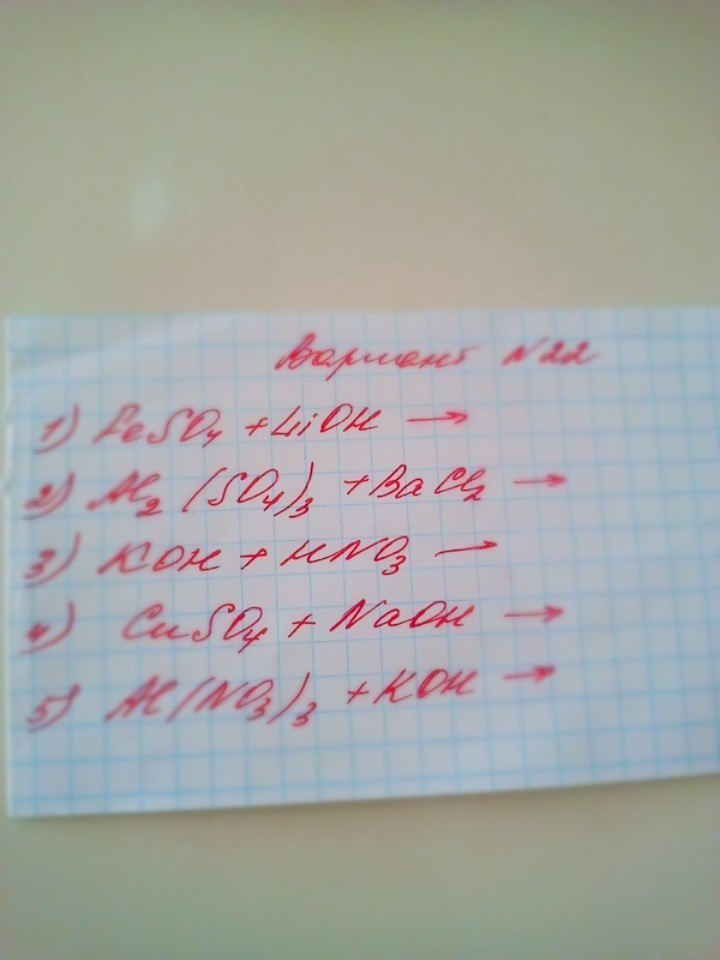 Вариант N22
1) FeSO₄ + LiOH →
2) Al₂(SO₄)₃ + BaCl₂ →
3) KOH + HNO₃ →
4) CuSO₄ + NaOH →
5) Al(NO₃)₃ + KOH →